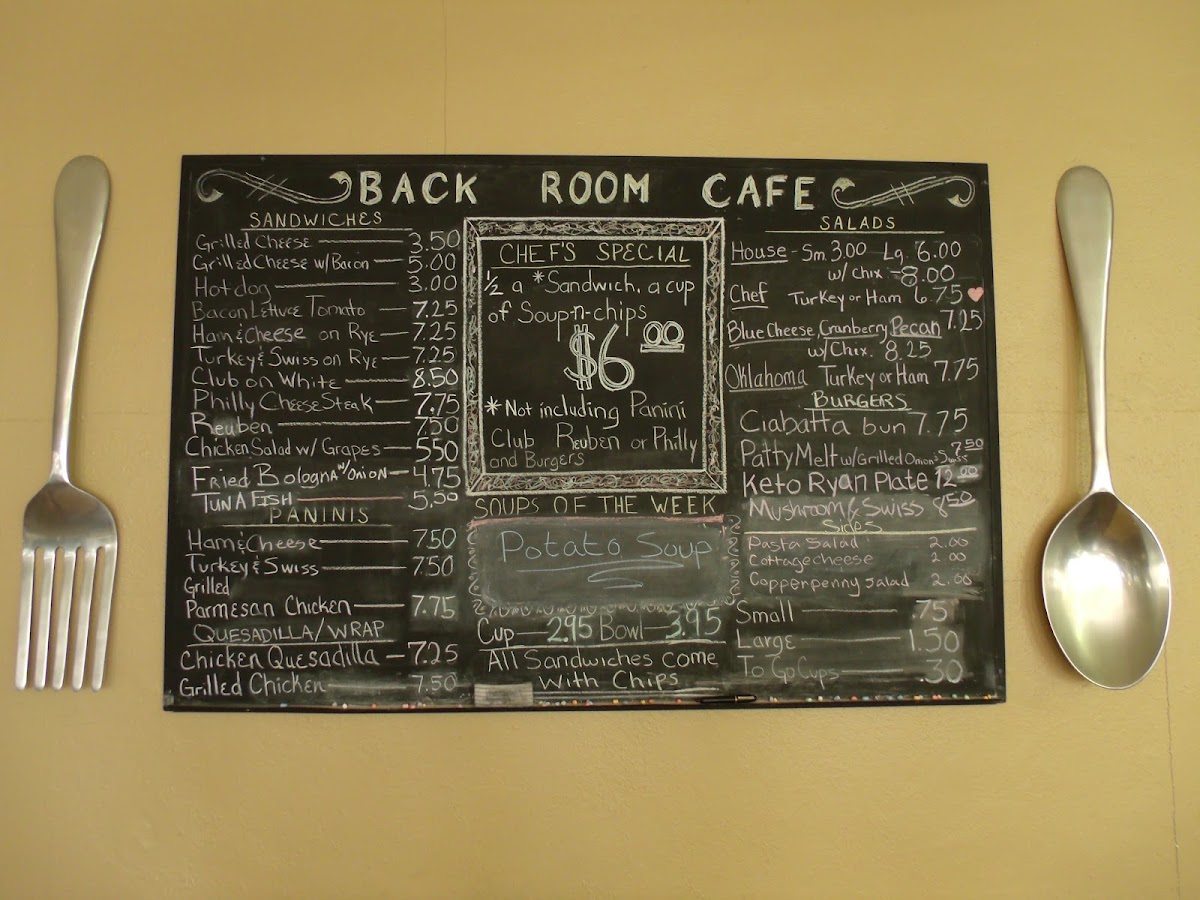 BACK ROOM CAFE
SANDWICHES
Grilled Cheese 3.50
Grilled Cheese w/Bacon 5.00
Hotdog 3.00
Bacon Lettuce Tomato 7.25
Ham & Cheese on Rye 7.25
Turkey & Swiss on Rye 7.25
Club on White 8.50
Philly Cheese Steak 7.75
Reuben 7.50
Chicken Salad w/ Grapes 5.50
Fried Bologna w/ Onion 4.75
TUNA FISH 5.50
PANINIS
Ham & Cheese 7.50
Turkey & Swiss 7.50
Grilled
Parmesan Chicken 7.75
QUESADILLA/WRAP
Chicken Quesadilla 7.25
Grilled Chicken 7.50
CHEF'S SPECIAL
½ a *Sandwich, a cup
of Soup-n-chips
$6.00
*Not including Panini
Club Reuben or Philly
and Burgers
SOUPS OF THE WEEK
Potato Soup
Cup 2.95 Bowl 3.95
All Sandwiches Come
With Chips
SALADS
House - Sm. 3.00 Lg. 6.00
w/ chix. - 8.00
Chef Turkey or Ham 6.75
Blue Cheese, Cranberry Pecan 7.25
w/Chix. 8.25
Oklahoma Turkey or Ham 7.75
BURGERS
Ciabatta bun 7.75
Patty Melt w/Grilled Onion & Swiss 7.50
Keto Ryan Plate 12.00
Mushroom & Swiss 8.50
Sides
Pasta Salad 2.00
Cottage cheese 2.00
Copperpenny Salad 2.00
Small .75
Large 1.50
To Go Cups .30